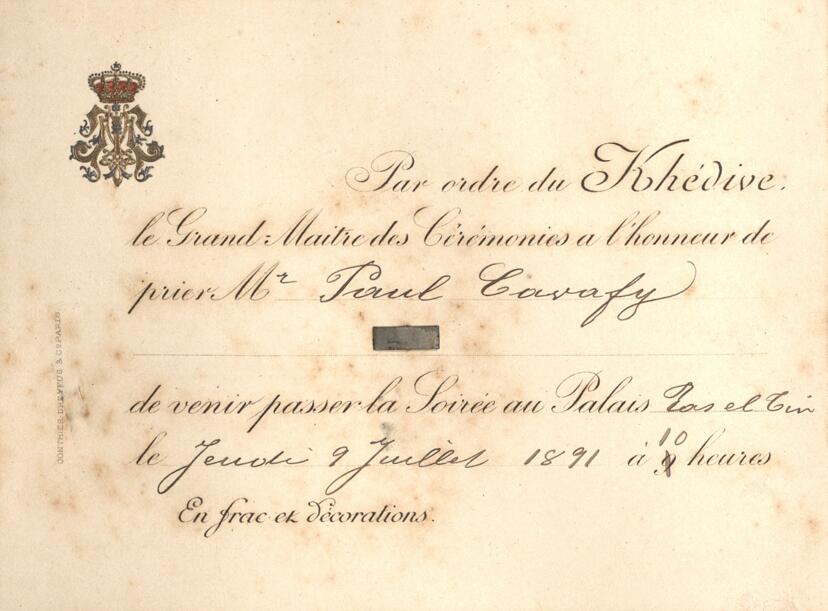 Par ordre du Khédive.
le Grand-Maitre des Cérémonies a l'honneur de
prier Mr Paul Cavafy
de venir passer la Soirée au Palais Ras el Tin
le Jeudi 9 Juillet 1891 à 10 heures
En frac et décorations.
GONTHIER-DREYFUS & Co PARIS